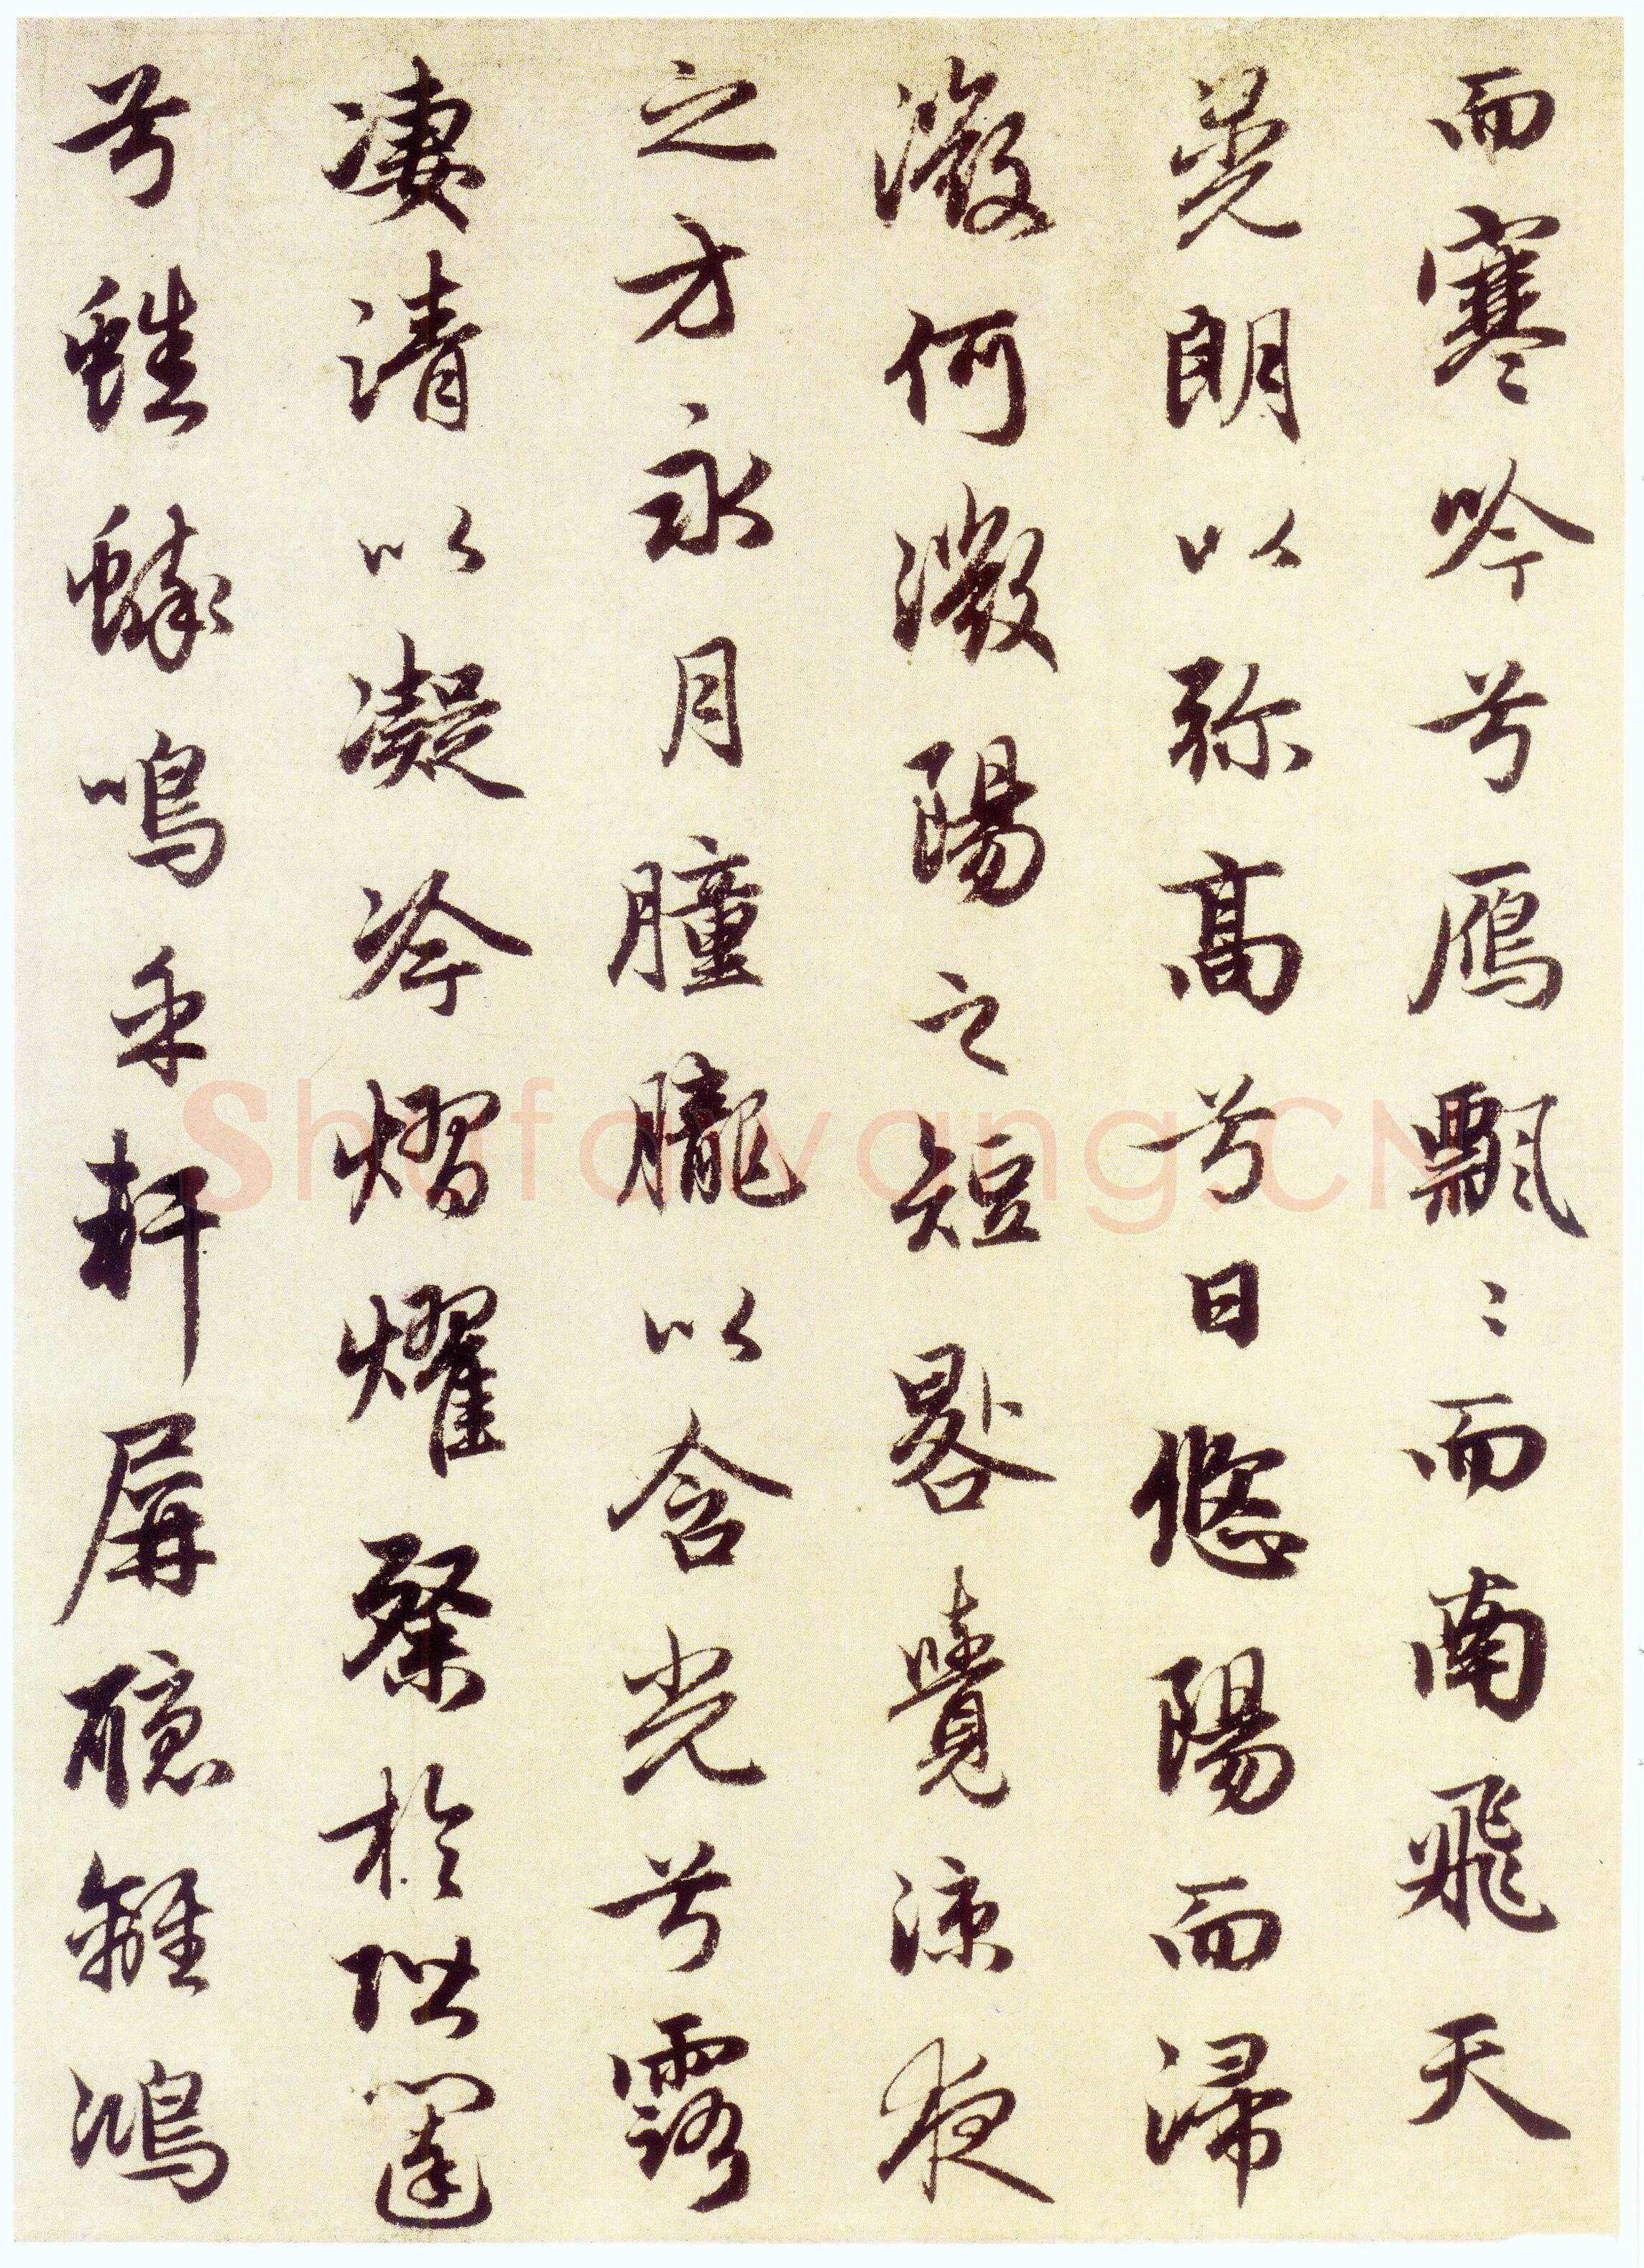 而寒吟兮雁飄〻而南飛天
晃朗以弥高兮日悠陽而浸
微何微陽之短晷覺涼夜
之方永月朣朧以含光兮露
凄清以凝冷熠燿粲於階闥
兮蟋蟀鳴乎軒屏聽離鴻
Shufawang.CN